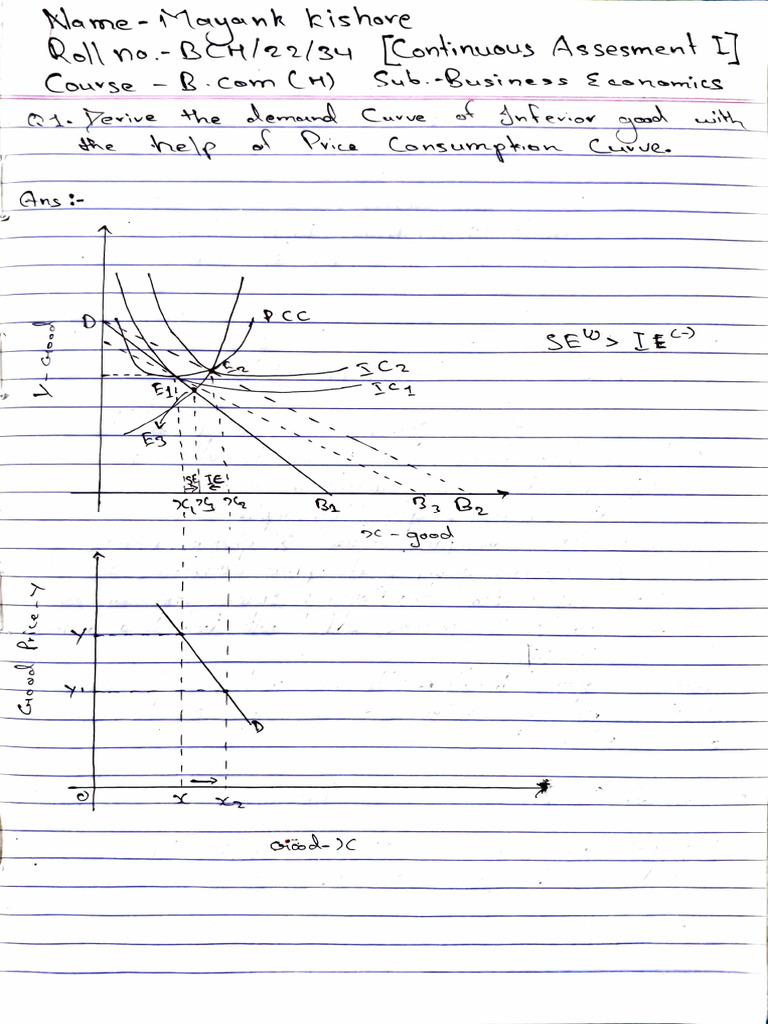 Name - Mayank Kishore
Roll no. - BCH/22/34 [Continuous Assesment I]
Course - B.com (H) Sub.-Business Economics
Q1. Derive the demand Curve of Inferior good with
the help of Price Consumption Curve.
Ans :-
D
PCC
SE(+) > IE(-)
Y-Good
E2
IC2
E1
IC1
E3
SE IE
x1 x3 x2 B1 B3 B2
x-good
Good Price-Y
Y
Y'
D
O x x2
Good-X